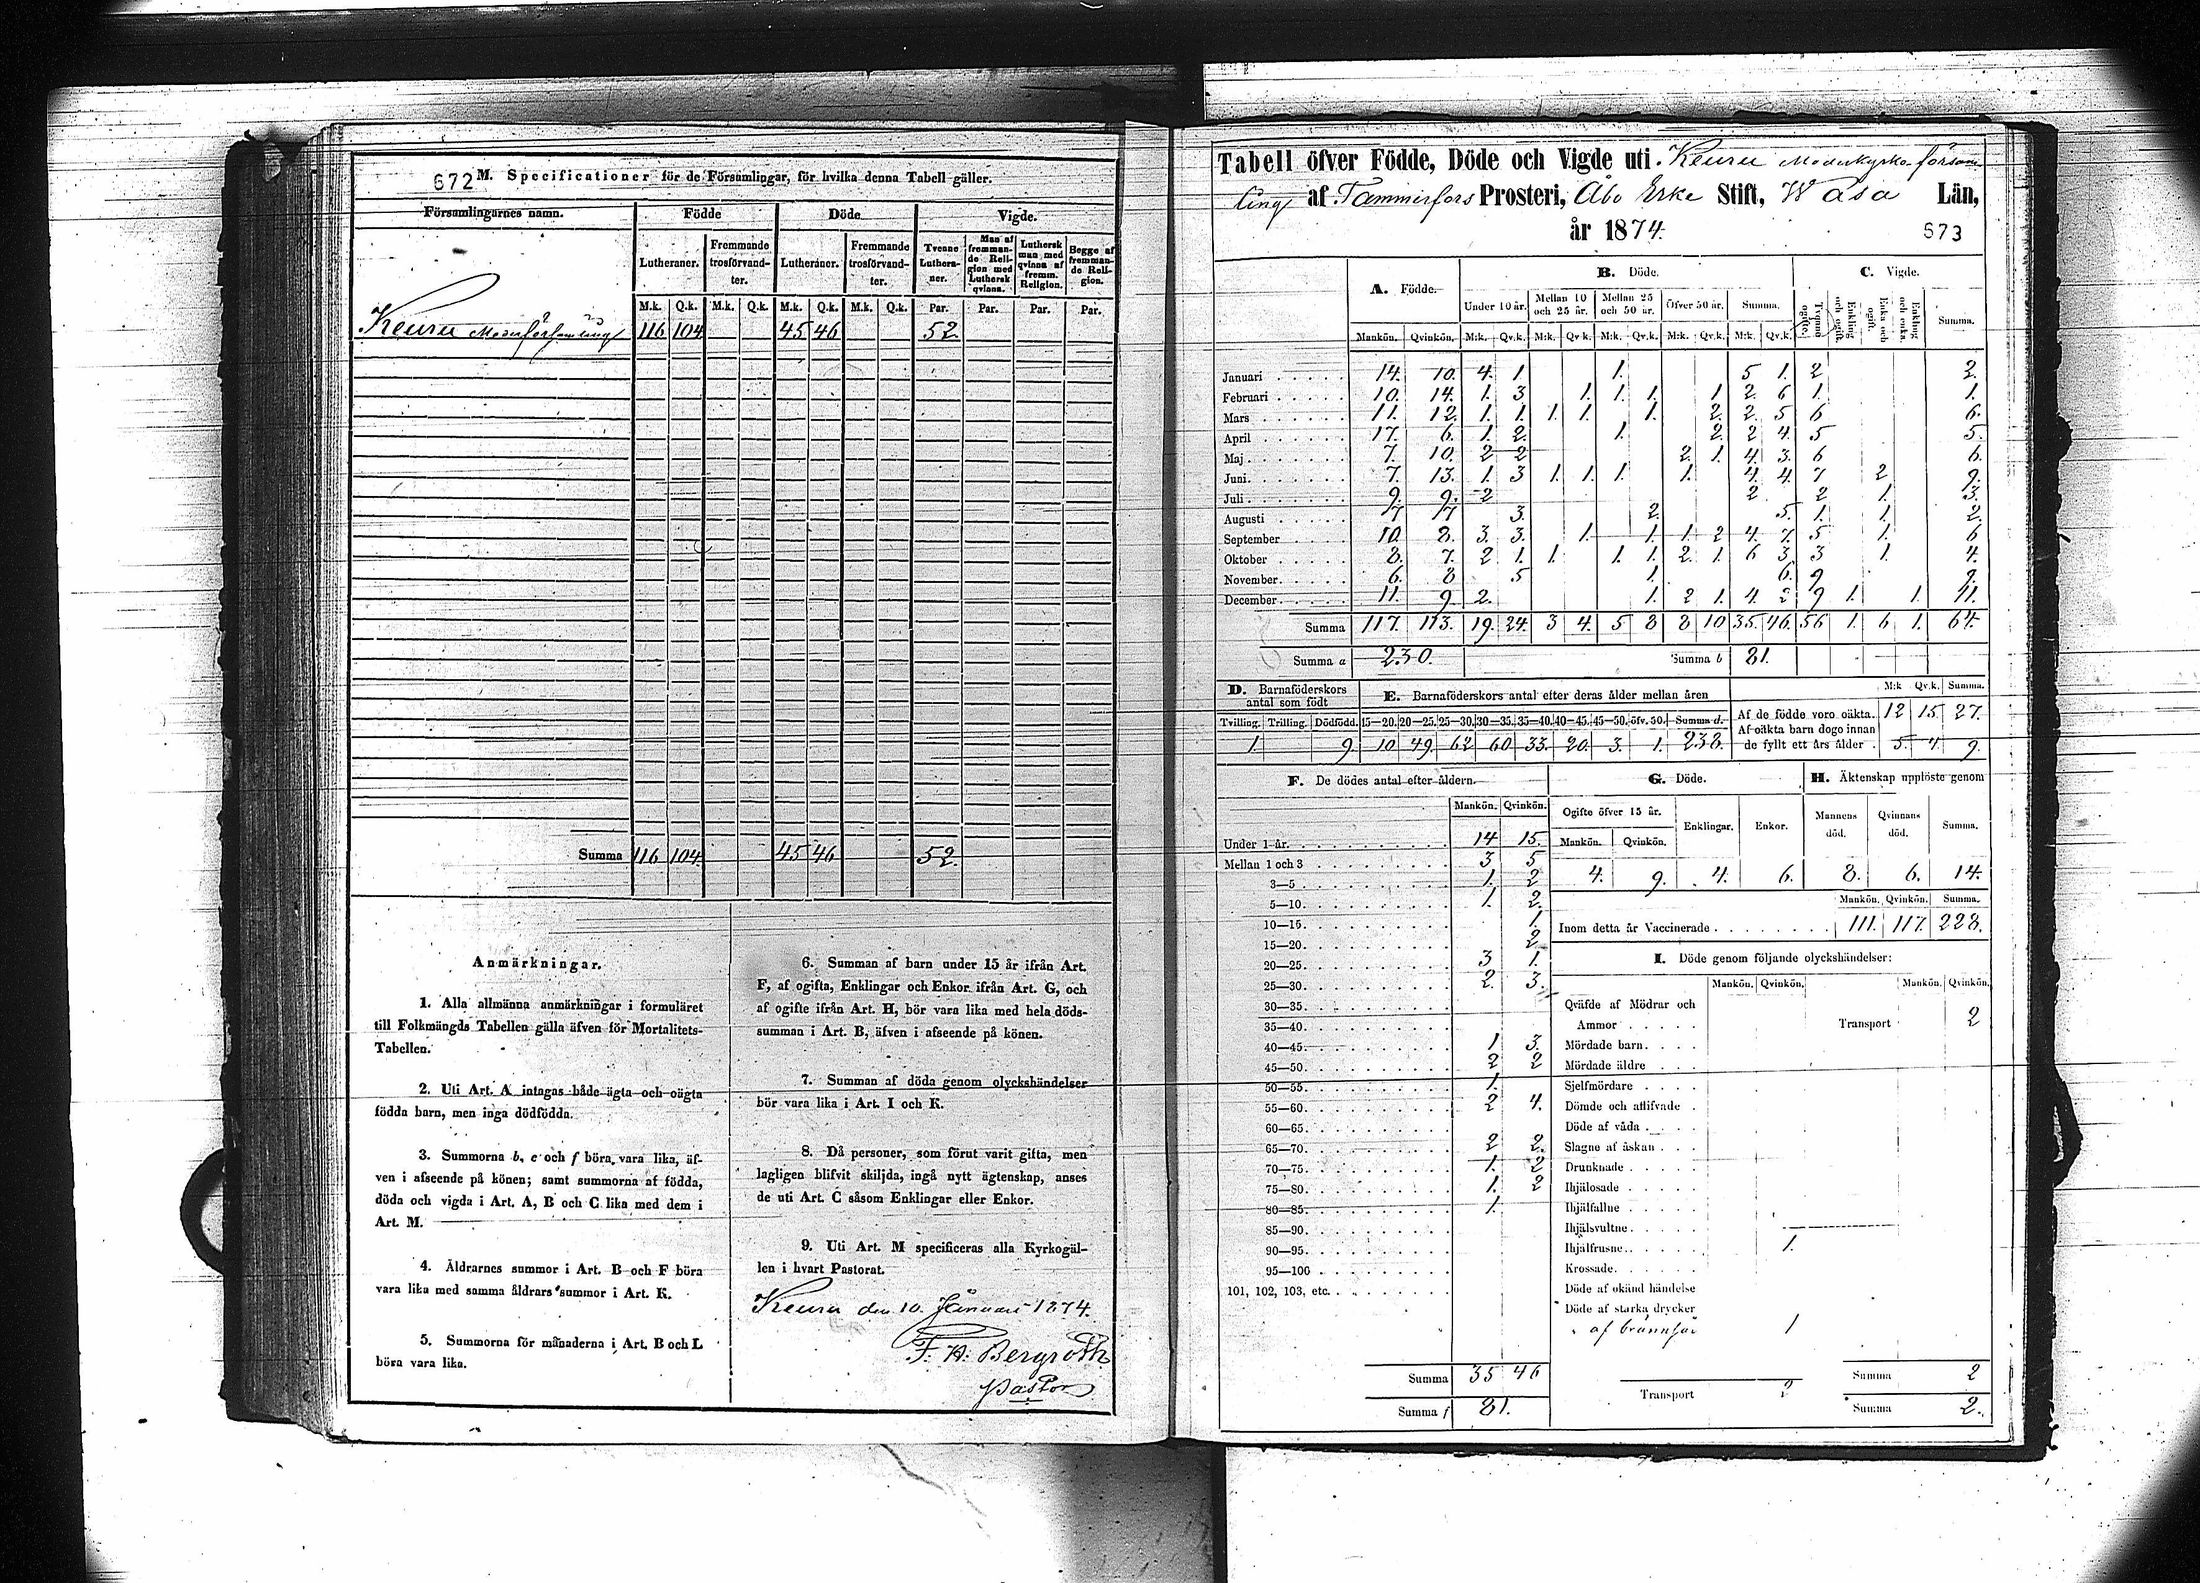 672 M. Specificationer för de Församlingar, för hvilka denna Tabell gäller.
Församlingarnes namn. Födde Döde Vigde.
Lutheraner. Fremmande trosförvandter. Lutheraner. Fremmande trosförvandter. Tvenne Lutheraner. Man af fremmande Religion med Luthersk qvinna. Luthersk man med qvinna af fremm. Religion. Begge af fremmande Religion.
M.k. Q.k. M.k. Q.k. M.k. Q.k. M.k. Q.k. Par. Par. Par. Par.
Keuru Moderförsamling 116 104 45 46 52.
Summa 116 104 45 46 52.
Anmärkningar.
1. Alla allmänna anmärkningar i formuläret
till Folkmängds Tabellen gälla äfven för Mortalitets-
Tabellen.
2. Uti Art. A intagas både ägta och oägta
födda barn, men inga dödfödda.
3. Summorna b, e och f böra vara lika, äf-
ven i afseende på könen; samt summorna af födda,
döda och vigda i Art. A, B och C lika med dem i
Art. M.
4. Åldrarnes summor i Art. B och F böra
vara lika med samma åldrars summor i Art. K.
5. Summorna för månaderna i Art. B och L
böra vara lika.
6. Summan af barn under 15 år ifrån Art.
F, af ogifta, Enklingar och Enkor ifrån Art. G, och
af ogifte ifrån Art. H, bör vara lika med hela döds-
summan i Art. B, äfven i afseende på könen.
7. Summan af döda genom olyckshändelser
bör vara lika i Art. I och K.
8. Då personer, som förut varit gifta, men
lagligen blifvit skiljda, ingå nytt ägtenskap, anses
de uti Art. C såsom Enklingar eller Enkor.
9. Uti Art. M specificeras alla Kyrkogäl-
len i hvart Pastorat.
Keuru den 10. Januari 1874.
F. W. Bergroth
Pastor
Tabell öfver Födde, Döde och Vigde uti Keuru Moderkyrko församl
ling af Tammerfors Prosteri, Åbo Erke Stift, Wasa Län,
år 1874.
673
A. Födde. B. Döde. C. Vigde.
Under 10 år. Mellan 10 och 25 år. Mellan 25 och 50 år. Öfver 50 år. Summa. Tvenne ogifte. Enkling och ogift. Enka och ogift. Enkling och enka. Summa.
Mankön. Qvinkön. M:k. Qv.k. M:k. Qv.k. M:k. Qv.k. M:k. Qv.k. M:k. Qv.k.
Januari 14. 10. 4. 1 1. 5 1. 2 2.
Februari 10. 14. 1. 3 1. 1. 1. 1 2. 6 1. 1.
Mars 11. 12. 1. 1. 1. 1. 1. 2. 2. 5 6 6.
April 17. 6. 1. 2. 1. 2. 2 4. 5 5.
Maj 7. 10. 2 2 2. 1. 4. 3. 6 6.
Juni 7. 13. 1. 3 1. 1. 1. 1. 4. 4. 7 2 9.
Juli 9. 9. 2 2 2 1. 3.
Augusti 7 7 3. 2. 5. 1. 1. 2.
September 10. 8. 3. 3. 1. 1. 1. 2 4. 7. 5 1. 6
Oktober 8. 7. 2 1. 1. 1. 1. 2. 1. 6 3. 3 1. 4.
November 6. 8 5 1. 6. 9 9.
December 11. 9 2. 1. 2 1. 4. 2 9 1. 1. 11.
Summa 117. 113. 19. 24. 3 4. 5 8 8 10 35. 46. 56 1. 6 1. 64.
Summa a 230. Summa b 81.
D. Barnaföderskors antal som födt
E. Barnaföderskors antal efter deras ålder mellan åren
M:k Qv.k. Summa.
Tvilling. Trilling. Dödfödd. 15—20. 20—25. 25—30. 30—35. 35—40. 40—45. 45—50. öfv. 50. Summa d.
1. 9. 10 49. 62 60 33. 20. 3. 1. 238.
Af de födde voro oäkta. 12 15 27.
Af oäkta barn dogo innan
de fyllt ett års ålder 5. 4 9.
F. De dödes antal efter åldern.
Mankön. Qvinkön.
Under 1 år. 14 15.
Mellan 1 och 3 3 5
3—5 1. 2
5—10. 1. 2.
10—15. 1.
15—20. 2
20—25. 3 1.
25—30. 2. 3.
30—35.
35—40.
40—45. 1 3.
45—50. 2 2
50—55. 1.
55—60. 2 4.
60—65.
65—70. 2 2.
70—75. 1. 2
75—80. 1. 2
80—85. 1.
85—90.
90—95.
95—100
101, 102, 103, etc.
Summa 35 46
Summa f 81.
G. Döde.
Ogifte öfver 15 år. Enklingar. Enkor.
Mankön. Qvinkön.
4. 9. 4. 6.
H. Äktenskap upplöste genom
Mannens död. Qvinnans död. Summa.
8. 6. 14.
Mankön. Qvinkön. Summa.
Inom detta år Vaccinerade 111. 117. 228.
I. Döde genom följande olyckshändelser:
Mankön. Qvinkön. Mankön. Qvinkön.
Qväfde af Mödrar och
Ammor
Transport 2
Mördade barn.
Mördade äldre
Sjelfmördare
Dömde och aflifvade
Döde af våda
Slagne af åskan
Drunknade
Ihjälosade
Ihjälfallne
Ihjälsvultne.
Ihjälfrusne. 1.
Krossade.
Döde af okänd händelse
Döde af starka drycker
Transport 2
Summa 2
Summa 2.